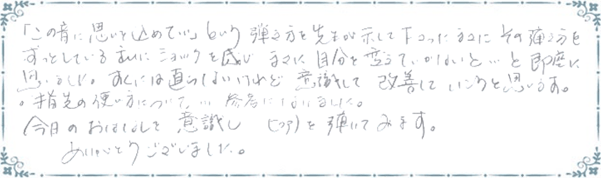 「この音に思いを込めて…」という弾き方を先生が示して下さったときにその弾き方を
ずっとしている まいにショックを感じ 自分を変えていかないと…と即座に
思いました。すぐには直らないけれど 意識して 改善していこうと思います。
・指先の使い方について… 参考になりました。
今日のおはなしを 意識し ピアノを弾いてみます。
ありがとうございました。